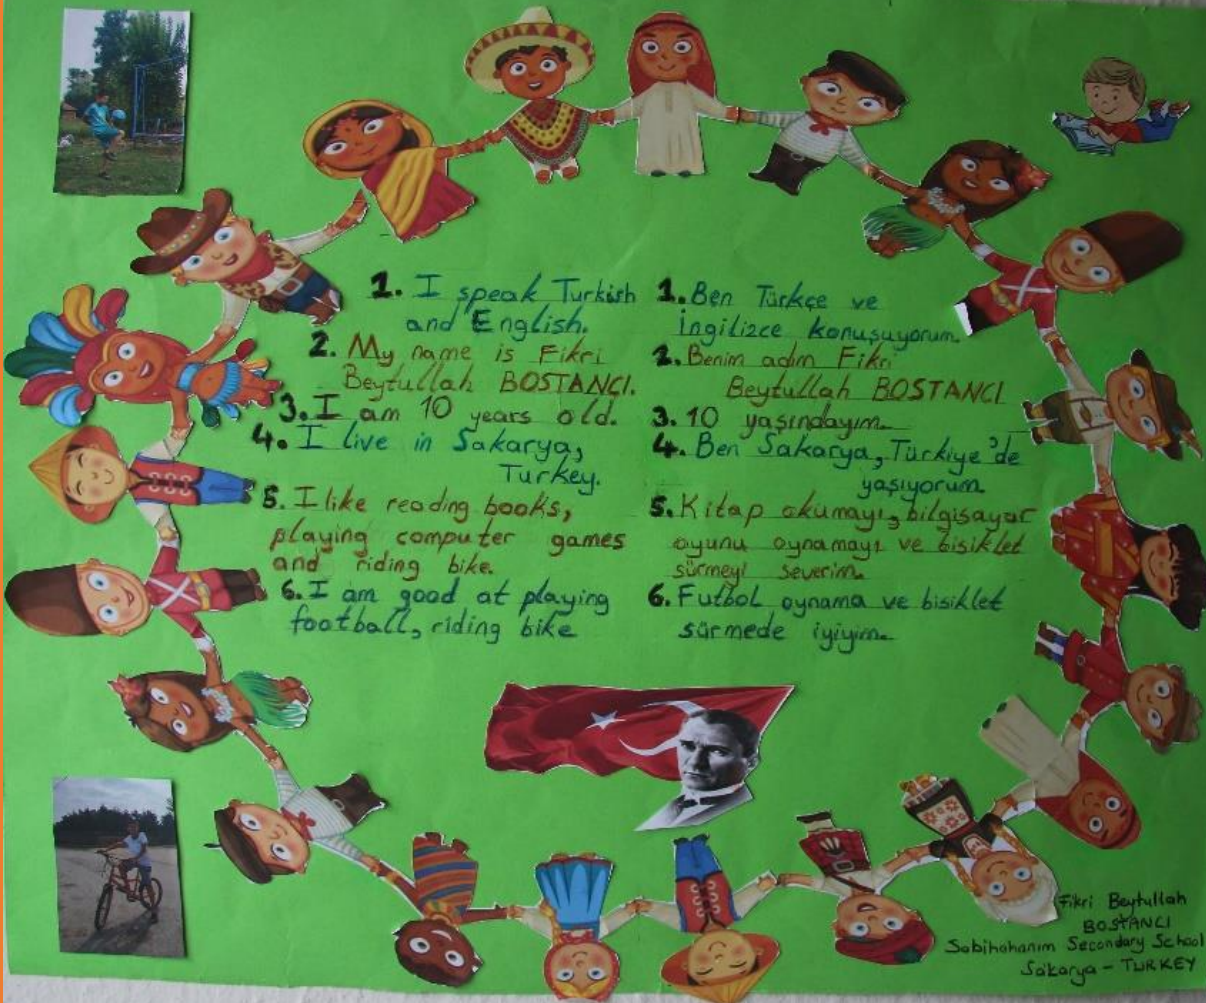 1. I speak Turkish
and English.
2. My name is Fikri
Beytullah BOSTANCI.
3. I am 10 years old.
4. I live in Sakarya,
Turkey.
5. I like reading books,
playing computer games
and riding bike.
6. I am good at playing
football, riding bike
1. Ben Türkçe ve
İngilizce konuşuyorum.
2. Benim adım Fikri
Beytullah BOSTANCI
3. 10 yaşındayım.
4. Ben Sakarya, Türkiye'de
yaşıyorum.
5. Kitap okumayı, bilgisayar
oyunu oynamayı ve bisiklet
sürmeyi severim.
6. Futbol oynama ve bisiklet
sürmede iyiyim.
Fikri Beytullah
BOSTANCI
Sabihahanım Secondary School
Sakarya - TURKEY